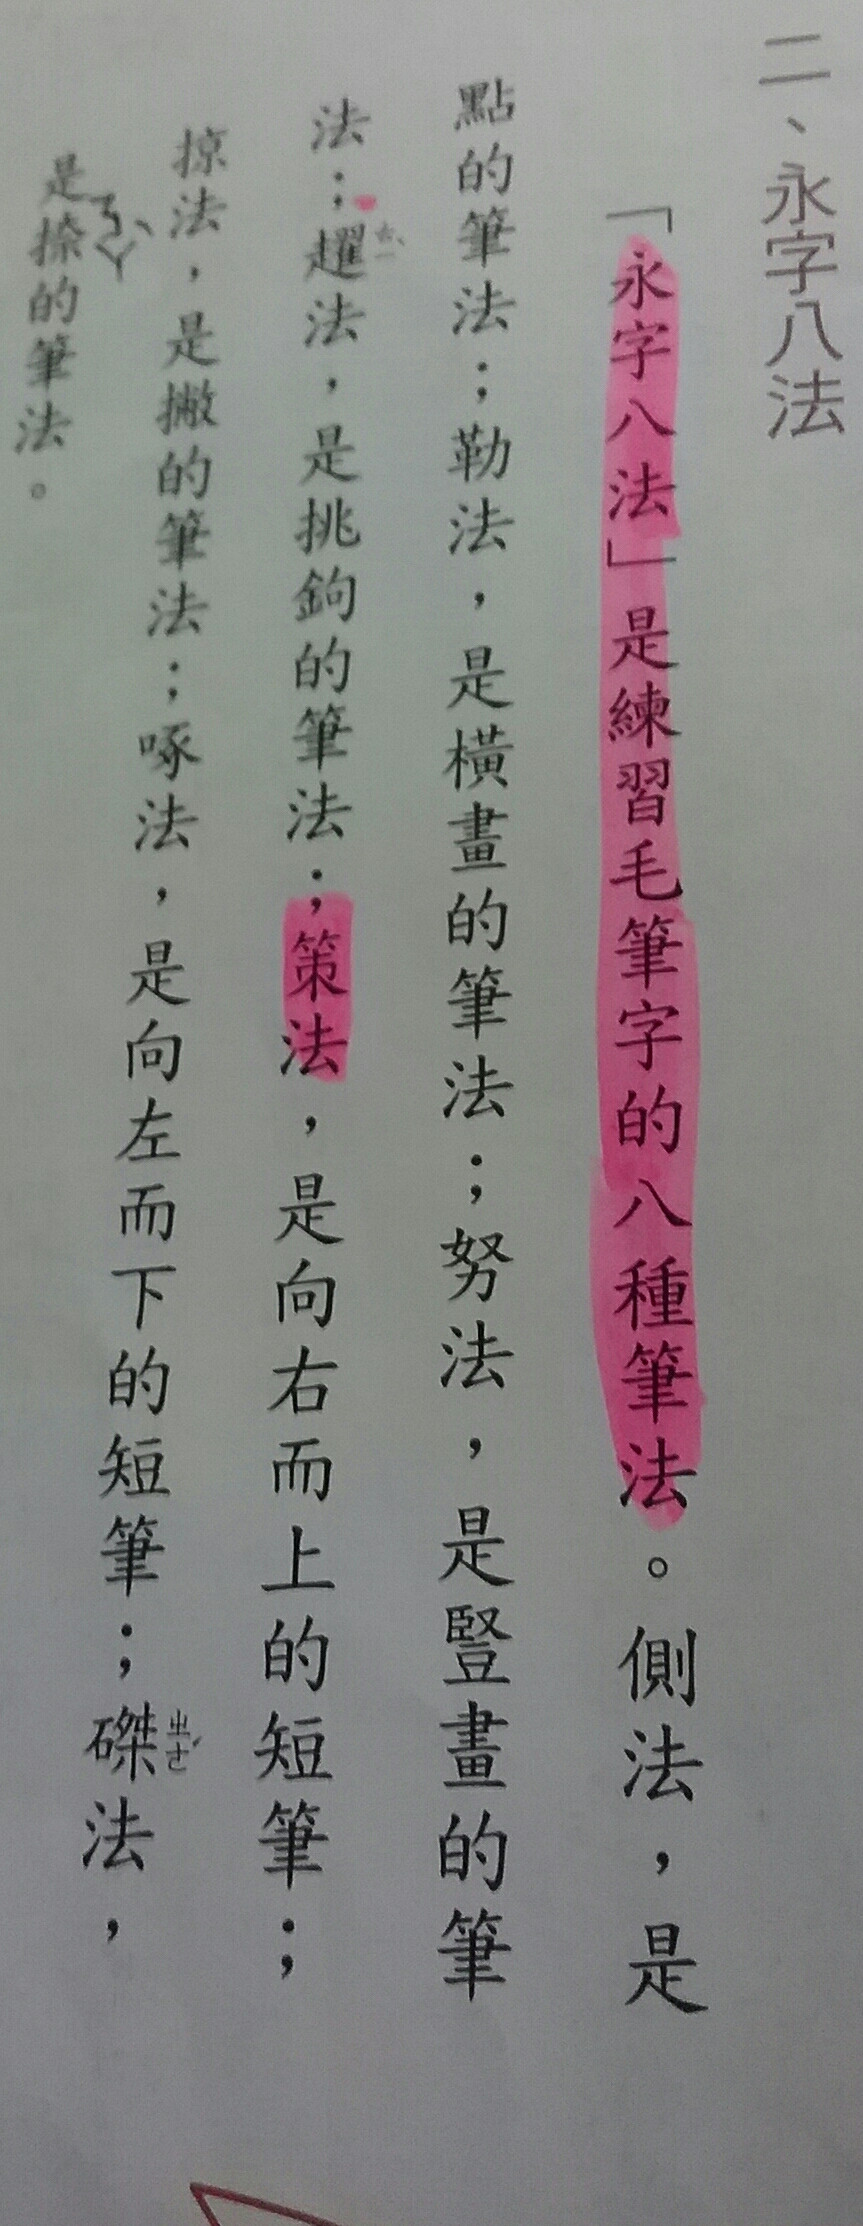 二、永字八法
「永字八法」是練習毛筆字的八種筆法。側法，是
點的筆法；勒法，是橫畫的筆法；努法，是豎畫的筆
法；趯法，是挑鉤的筆法；策法，是向右而上的短筆；
ㄊㄧˋ
掠法，是撇的筆法；啄法，是向左而下的短筆；磔法，
ㄓㄜˊ
是捺的筆法。
ㄋㄚˋ